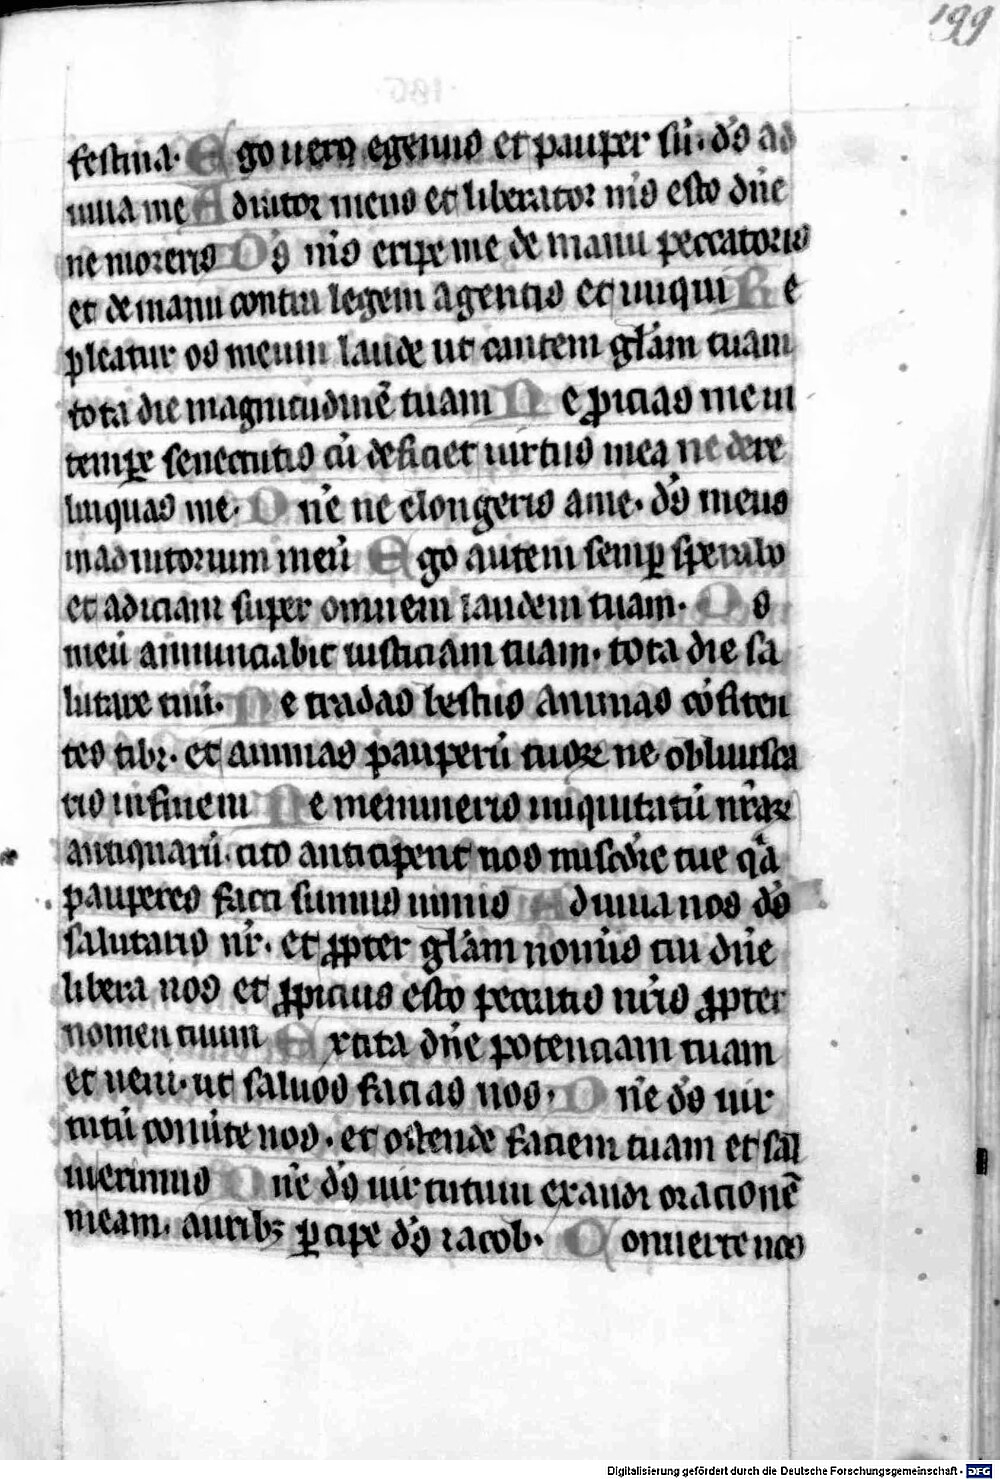 199
festina. Ego uero egenus et pauper sū. ds̄ ad
iuua me Adiutor meus et liberator m̄s esto dn̄e
ne moreris Ds̄ m̄s eripe me de manu peccatoris
et de manu contra legem agentis et iniqui Re
pleatur os meum laude ut cantem glām tuam
tota die magnitudinē tuam Ne ꝓicias me in
tempe senectutis cū deficiet uirtus mea ne dere
linquas me. Dn̄e ne elongeris a me. ds̄ meus
in adiutorium meū Ego autem semꝑ sperabo
et adiciam super omnem laudem tuam. Os
meū annunciabit iusticiam tuam. tota die sa
lutare tuū. Ne tradas bestiis animas cōfiten
tes tibi. et animas pauperū tuoꝝ ne obliuisca
ris in finem Ne memineris iniquitatū nr̄aꝝ
antiquarū. cito anticipent nos mīscd̄ie tue qa
pauperes facti sumus nimis Adiuua nos ds̄
salutaris nr̄. et ꝓpter glām nomīs tui dn̄e
libera nos et ꝓpicius esto peccatis nr̄is ꝓpter
nomen tuum Excita dn̄e potenciam tuam
et ueni. ut saluos facias nos. Dn̄e ds̄ uir
tutū conūte nos. et ostende faciem tuam et sal
ui erimus Dn̄e ds̄ uirtutum exaudi oracionē
meam. auribꝫ ꝑcipe ds̄ iacob. Conuerte nos
Digitalisierung gefördert durch die Deutsche Forschungsgemeinschaft - DFG